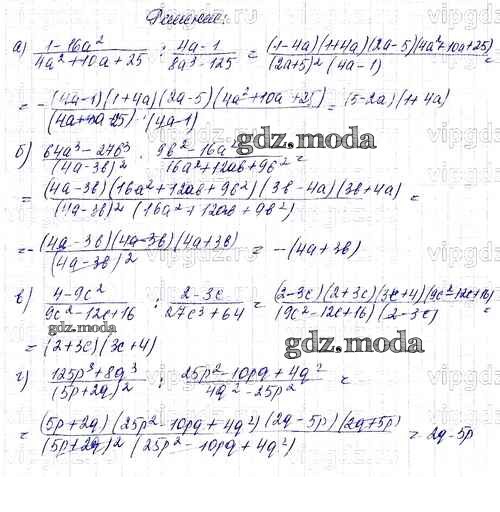 Решение:
а) (1-16a²)/(4a²+10a+25) : (4a-1)/(8a³-125) = (1-4a)(1+4a)(2a-5)(4a²+10a+25)/(2a+5)²(4a-1) =
= -(4a-1)(1+4a)(2a-5)(4a²+10a+25)/(4a+10a25)·(4a-1) = (5-2a)(1+4a)
б) (64a³-27b³)/(4a-3b)² · (9b²-16a²)/(16a²+12ab+9b²) =
= (4a-3b)(16a²+12ab+9b²)(3b-4a)(3b+4a)/(4a-3b)²(16a²+12ab+9b²) =
= -(4a-3b)(4a-3b)(4a+3b)/(4a-3b)² = -(4a+3b)
в) (4-9c²)/(9c²-12c+16) : (2-3c)/(27c³+64) = (2-3c)(2+3c)(3c+4)(9c²-12c+16)/(9c²-12c+16)(2-3c) =
= (2+3c)(3c+4)
г) (125p³+8q³)/(5p+2q)² : (25p²-10pq+4q²)/(4q²-25p²) =
= (5p+2q)(25p²-10pq+4q²)(2q-5p)(2q+5p)/(5p+2q)²(25p²-10pq+4q²) = 2q-5p
gdz.moda
gdz.moda